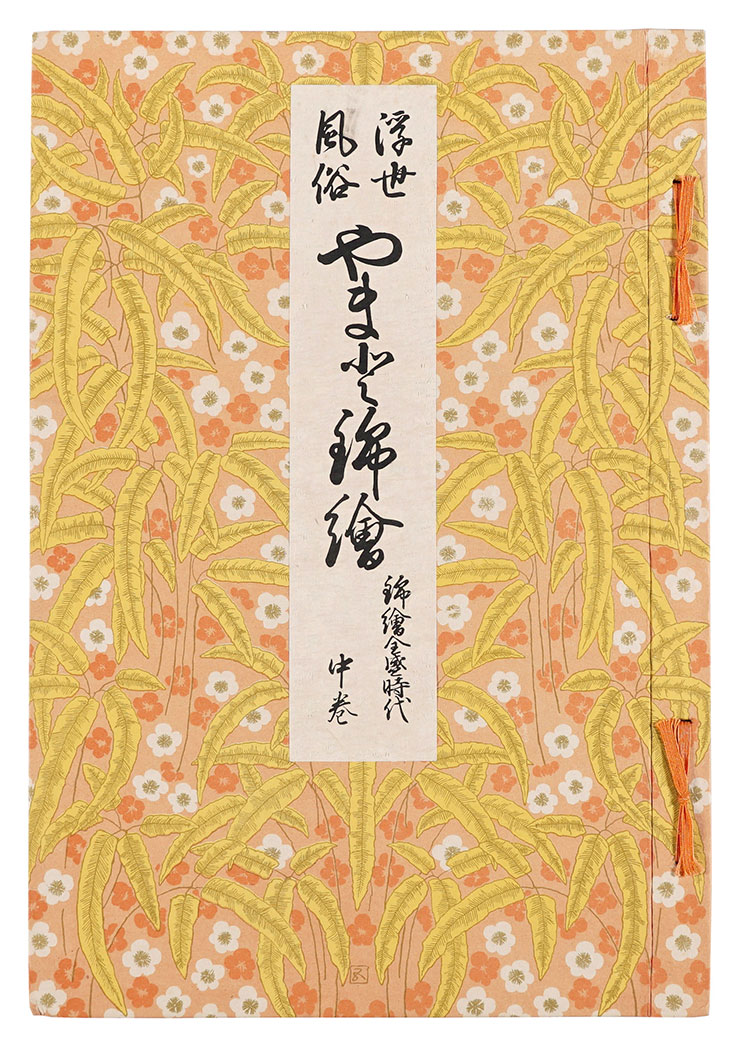 浮世
風俗
やまと錦繪
錦繪全盛時代
中巻